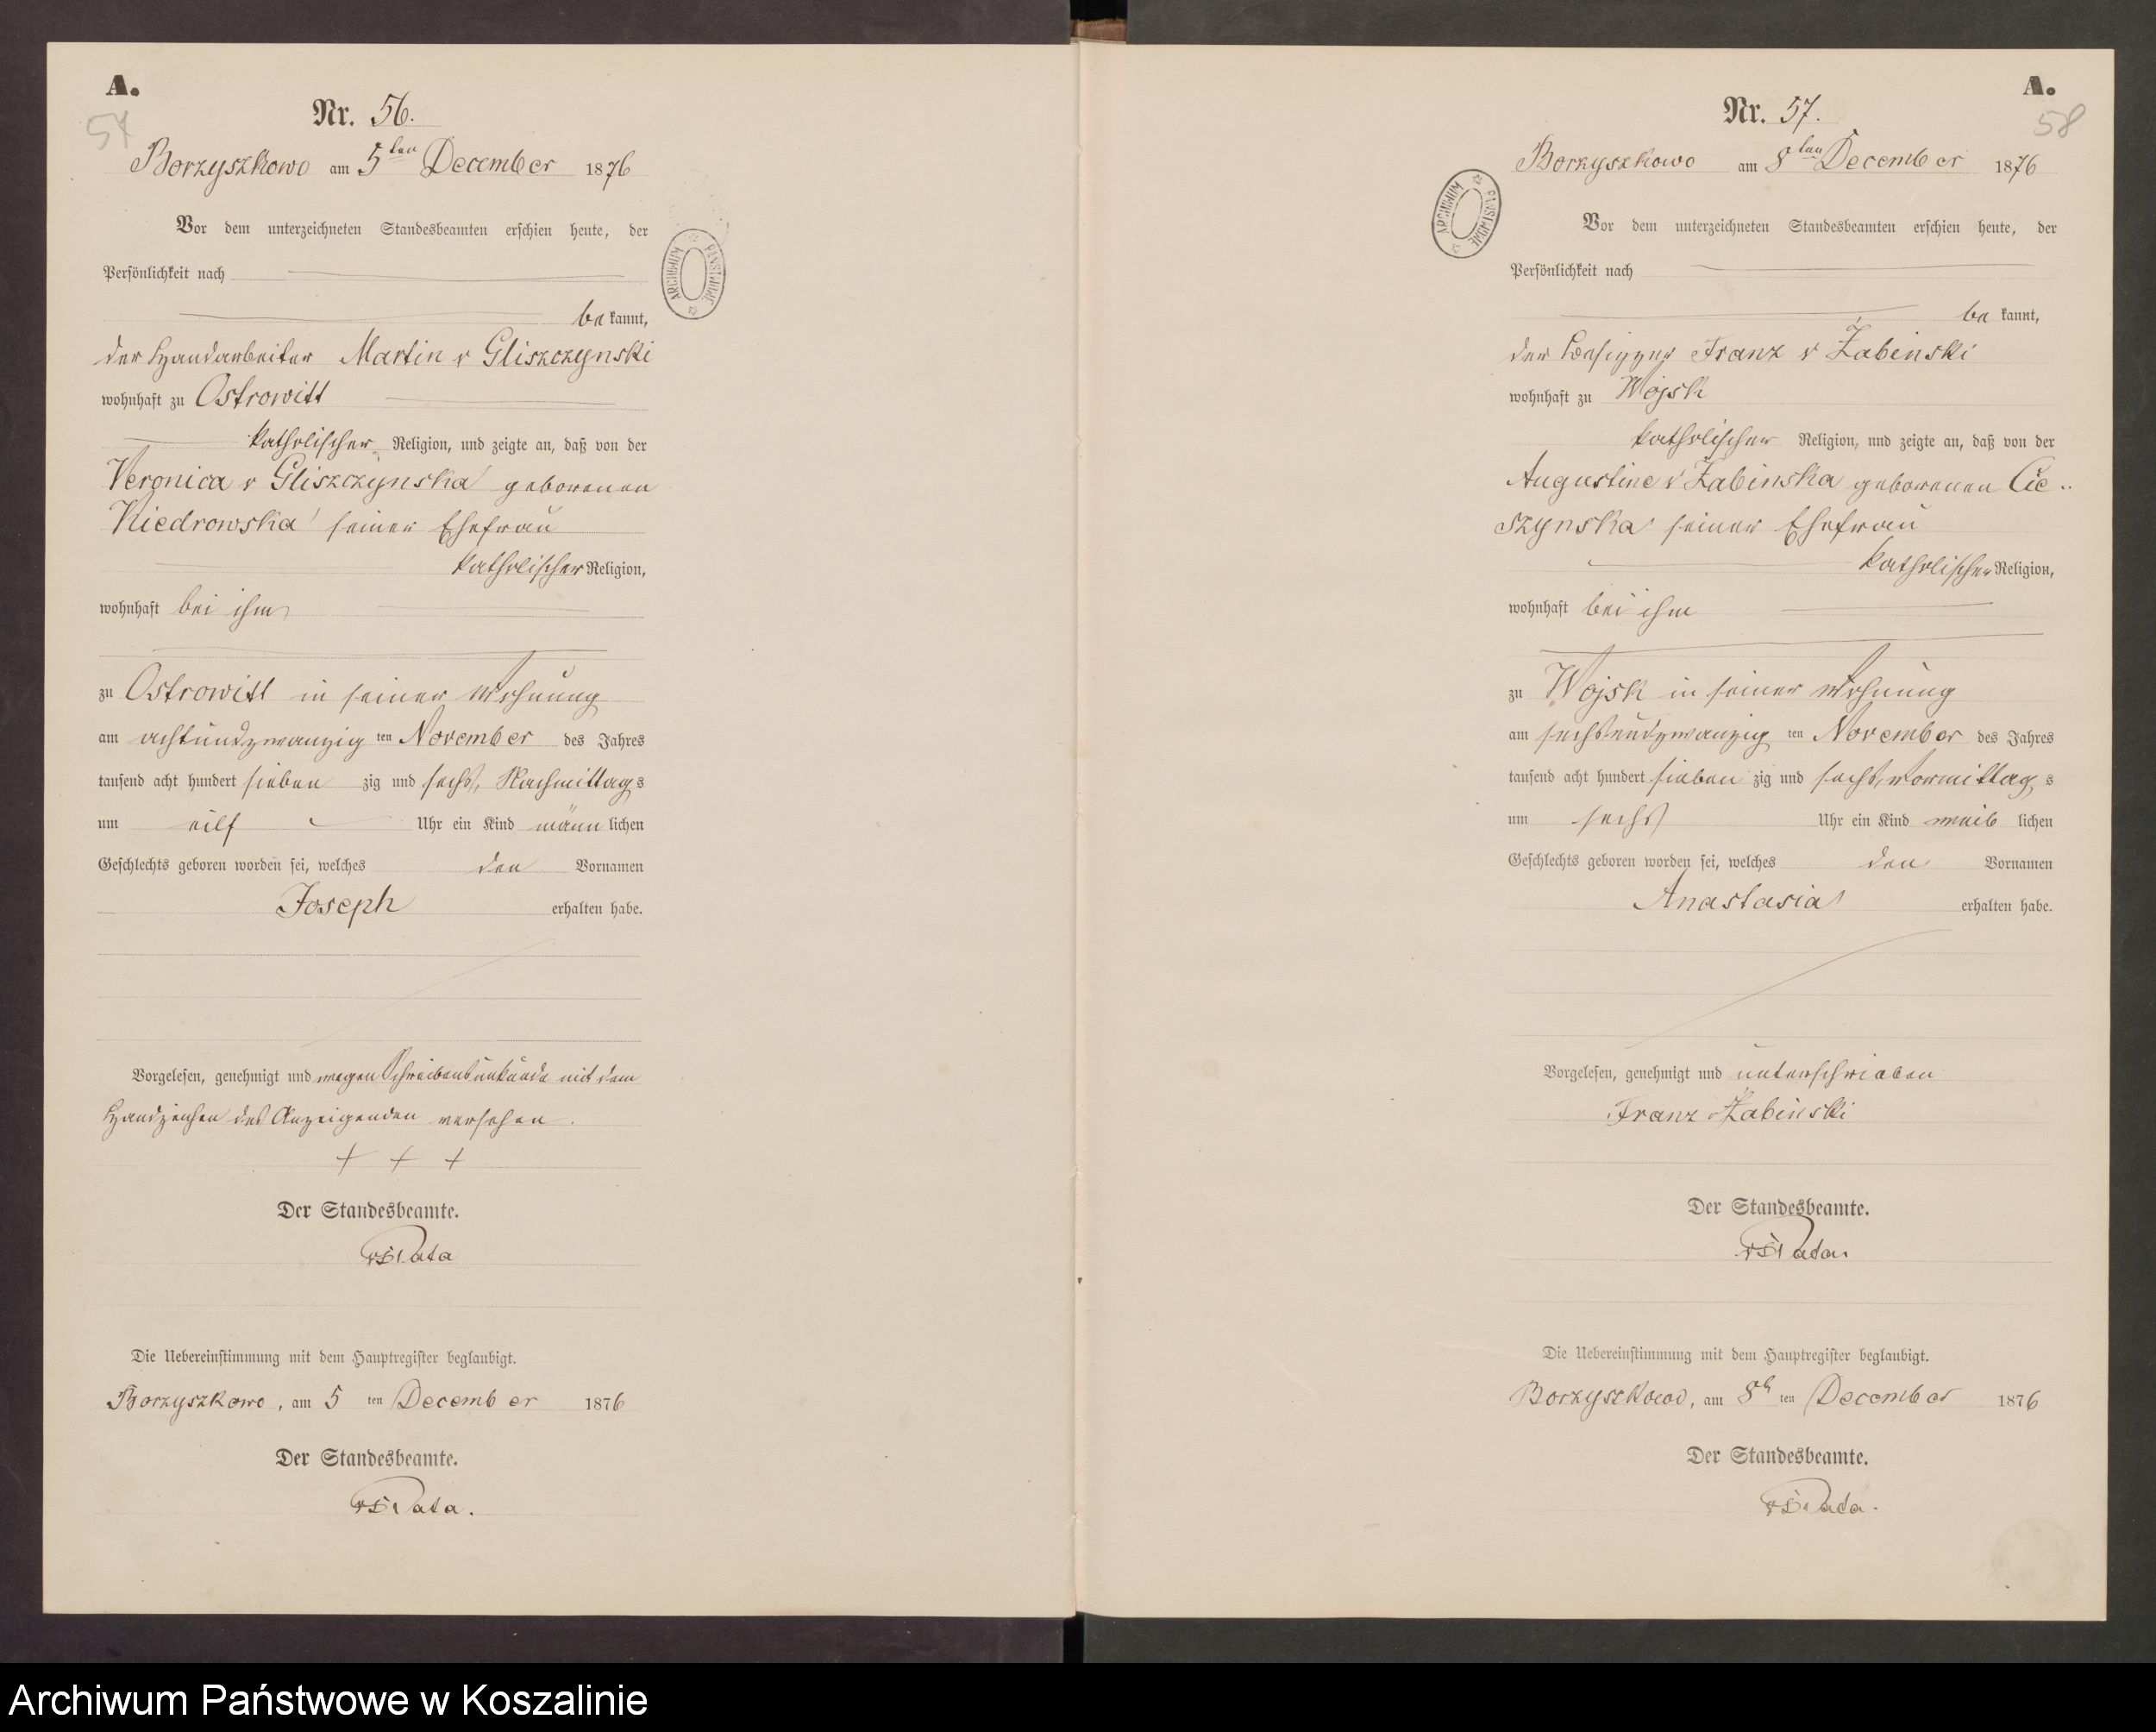 A.
57
Nr. 56.
Borzyszkowo am 5ten December 1876
Vor dem unterzeichneten Standesbeamten erschien heute, der
Persönlichkeit nach
be kannt,
der Handarbeiter Martin v Gliszczynski
wohnhaft zu Ostrowitt
katholischer Religion, und zeigte an, daß von der
Veronica v Gliszczynska geborenen
Kiedrowska seiner Ehefrau
katholischer Religion,
wohnhaft bei ihm
zu Ostrowitt in seiner Wohnung
am achtundzwanzig ten November des Jahres
tausend acht hundert sieben zig und sechs, Nachmittag s
um eilf Uhr ein Kind männ lichen
Geschlechts geboren worden sei, welches den Vornamen
Joseph erhalten habe.
Vorgelesen, genehmigt und wegen Schreibensunkunde mit dem
Handzeichen des Anzeigenden versehen.
+ + +
Der Standesbeamte.
Pata
Die Uebereinstimmung mit dem Hauptregister beglaubigt.
Borzyszkowo, am 5 ten December 1876
Der Standesbeamte.
Pata.
ARCHIWUM PAŃSTWOWE
A.
58
Nr. 57.
Borzyszkowo am 8ten December 1876
Vor dem unterzeichneten Standesbeamten erschien heute, der
Persönlichkeit nach
be kannt,
der Franz v Żabinski
wohnhaft zu Wojsk
katholischer Religion, und zeigte an, daß von der
Augustine v Żabinska geborenen Cie..
szynska seiner Ehefrau
katholischer Religion,
wohnhaft bei ihm
zu Wojsk in seiner Wohnung
am sechsundzwanzig ten November des Jahres
tausend acht hundert sieben zig und sechs, Vormittag s
um sechs Uhr ein Kind weib lichen
Geschlechts geboren worden sei, welches den Vornamen
Anastasia erhalten habe.
Vorgelesen, genehmigt und unterschrieben
Franz Żabinski
Der Standesbeamte.
Pata.
Die Uebereinstimmung mit dem Hauptregister beglaubigt.
Borzyszkowo, am 8 ten December 1876
Der Standesbeamte.
Pata.
ARCHIWUM PAŃSTWOWE
Archiwum Państwowe w Koszalinie